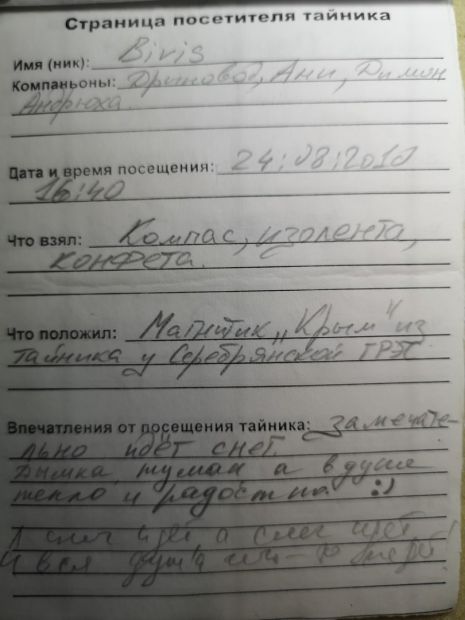 Страница посетителя тайника
Имя (ник): Biris
Компаньоны: Ани, Димон
Андрюха.
Дата и время посещения: 24:08:2010
16:40
Что взял: Компас, изолента,
конфета.
Что положил: Магнитик "Крым" из
тайника у Серебрянской ГРЭС
Впечатления от посещения тайника: замечате-
льно идёт снег.
Дымка, туман а в душе
тепло и радостно. :)
А снег идёт, а снег идёт
И вся